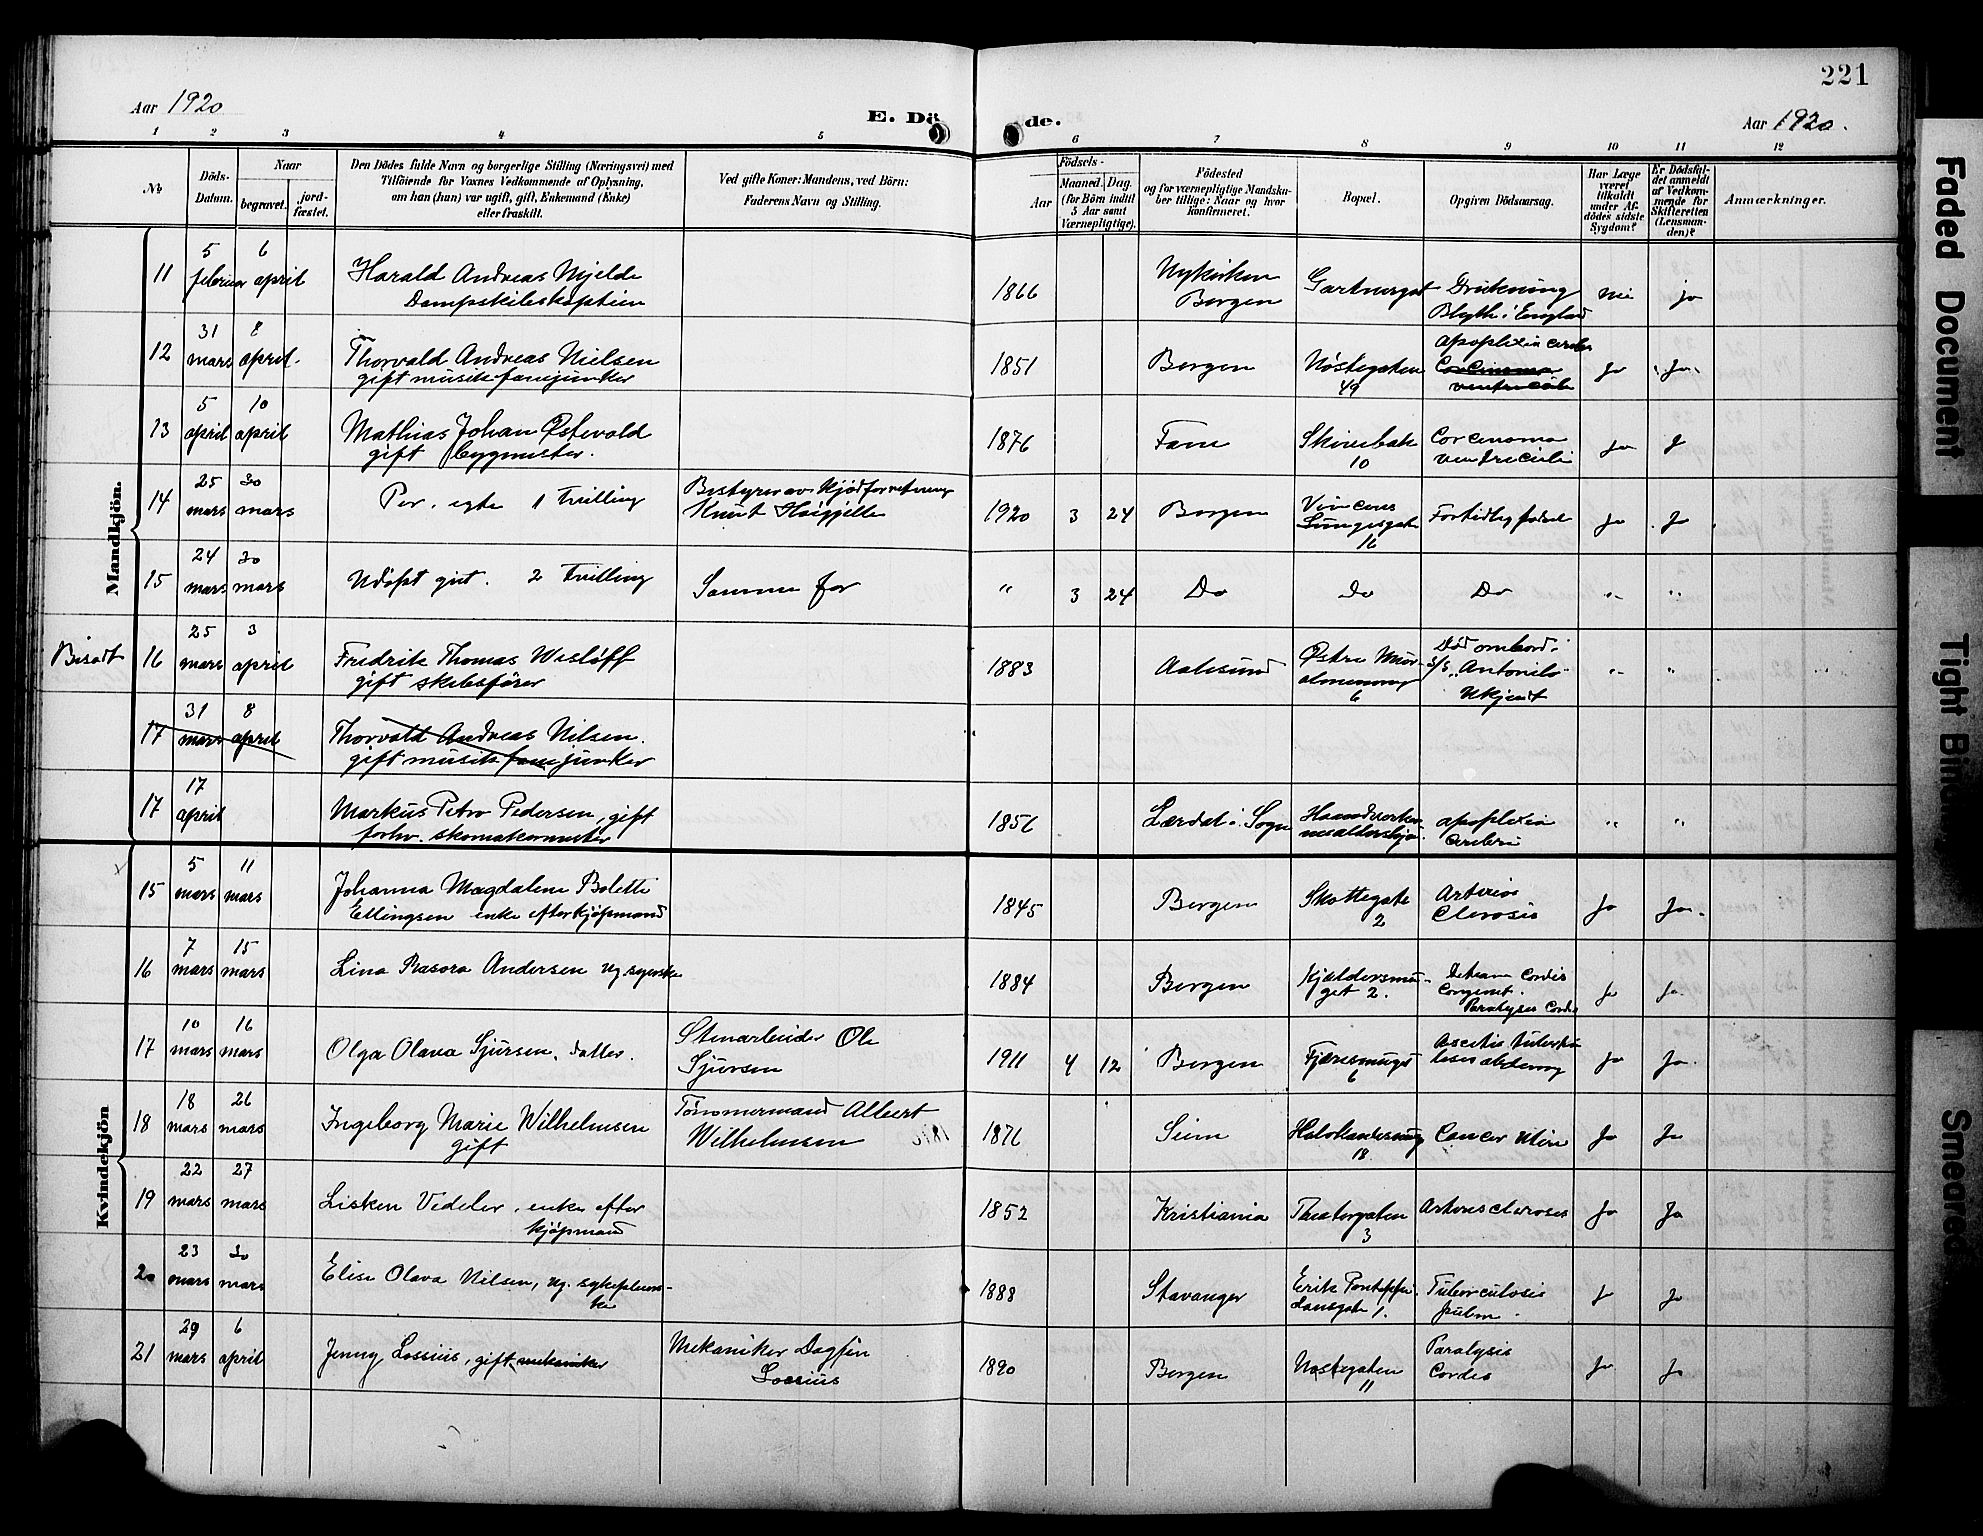 221
Aar 1920
E. Dö de.
Aar 1920.
1 2 3 4 5 6 7 8 9 10 11 12
No
Döds-Datum.
Naar
begravet.
jord-fæstet.
Den Dödes fulde Navn og borgerlige Stilling (Næringsvei) med
Tilföiende for Voxnes Vedkommende af Oplysning,
om han (hun) var ugift, gift, Enkemand (Enke)
eller fraskilt.
Ved gifte Koner: Mandens, ved Börn:
Faderens Navn og Stilling.
Födsels-
Aar
Maaned. Dag.
(for Börn indtil
5 Aar samt
Værnepligtige).
Födested
og for værnepligtige Mandska-
ber tillige: Naar og hvor
Konfirmeret.
Bopæl.
Opgiven Dödsaarsag.
Har Læge
været
tilkaldt
under Af-
dödes sidste
Sygdom?
Er Dödsfal-
det anmeldt
af Vedkom-
mende for
Skifteretten
(Lensman-
den)?
Anmærkninger.
Mandkjön.
11 5 februar 6 april Harald Andreas Mjelde
Dampskibskaptein
1866 Nykirken Bergen Gartnergat Drukning
Blyth i England nei ja
12 31 mars 8 april. Thorvald Andreas Nielsen
gift musik fanejunker
1851 Bergen Nöstegaten 49 apoplexia cerebri
Carcinoma
ventriculi
Ja Ja
13 5 april 10 april Mathias Johan Østevold
gift bygmester.
1876 Fane Skivebak 10 Carcinoma
ventriculi ja J
14 25 mars 30 mars Per. egte 1 Tvilling Bestyrer av Kjødforretning
Knut
1920 3 24 Bergen
16 Fortidlig fødsel Ja Ja
15 24 mars 30 mars Udøpt gut. 2 Tvilling Samme far
" 3 24 Do Do Do " "
Bisadt 16 25 mars 3 april Fredrik Thomas Wisløff
gift skibsfører
1883 Aalesund Østre Mur-
almenning
6 Død ombord i
S/S "Antonio"
Ukjent " "
17 31 mars 8 april Thorvald Andreas Nilsen.
gift musik fanejunker
17 17 april Markus Petro Pedersen, gift
forhv. skomakermester
1856 Lærdal i Sogn
apoplexia
cerebri " "
Kvindekjön
15 5 mars 11 mars Johanna Magdalene Bolette
Ellingsen enke efter kjøpmand
1845 Bergen Skottegate
2 Arterios
Clerosis Ja Ja.
16 7 mars 15 mars Lina Rasora Andersen ug. syerske
1884 Bergen Kjeldersmu-
get 2.
Cordis
Congenit.
Paralyses Cordis Ja Ja.
17 10 mars 16 mars Olga Olava Sjursen, datter. Stenarbeider Ole
Sjursen
1911 4 12 Bergen Fjæresmuget
6 Ascitis tuberku
Ja Ja
18 18 mars 26 mars Ingeborg Marie Wilhelmsen
gift Tømmermand Albert
Wilhelmsen
1876 Seim
18 Cancer Uteri Ja Ja
19 22 mars 27 mars Lisken Vedeler, enke efter
kjøpmand
1852 Kristiania Theatergaten
3 Arteriosclerosis Ja Ja
20 23 mars 30 mars Elise Olava Nilsen, ug. sykepleier-
ske
1888 Stavanger Erik Pontoppi-
dansgate 1. Tuberculosis
pulm. J Ja
21 29 mars 6 april Jenny Lossius, gift mekaniker Mekaniker Dagfin
Lossius
1890 Bergen Nøstegaten
11 Paralysis
Cordis Ja Ja
Faded Document
Tight Bin
Smeared